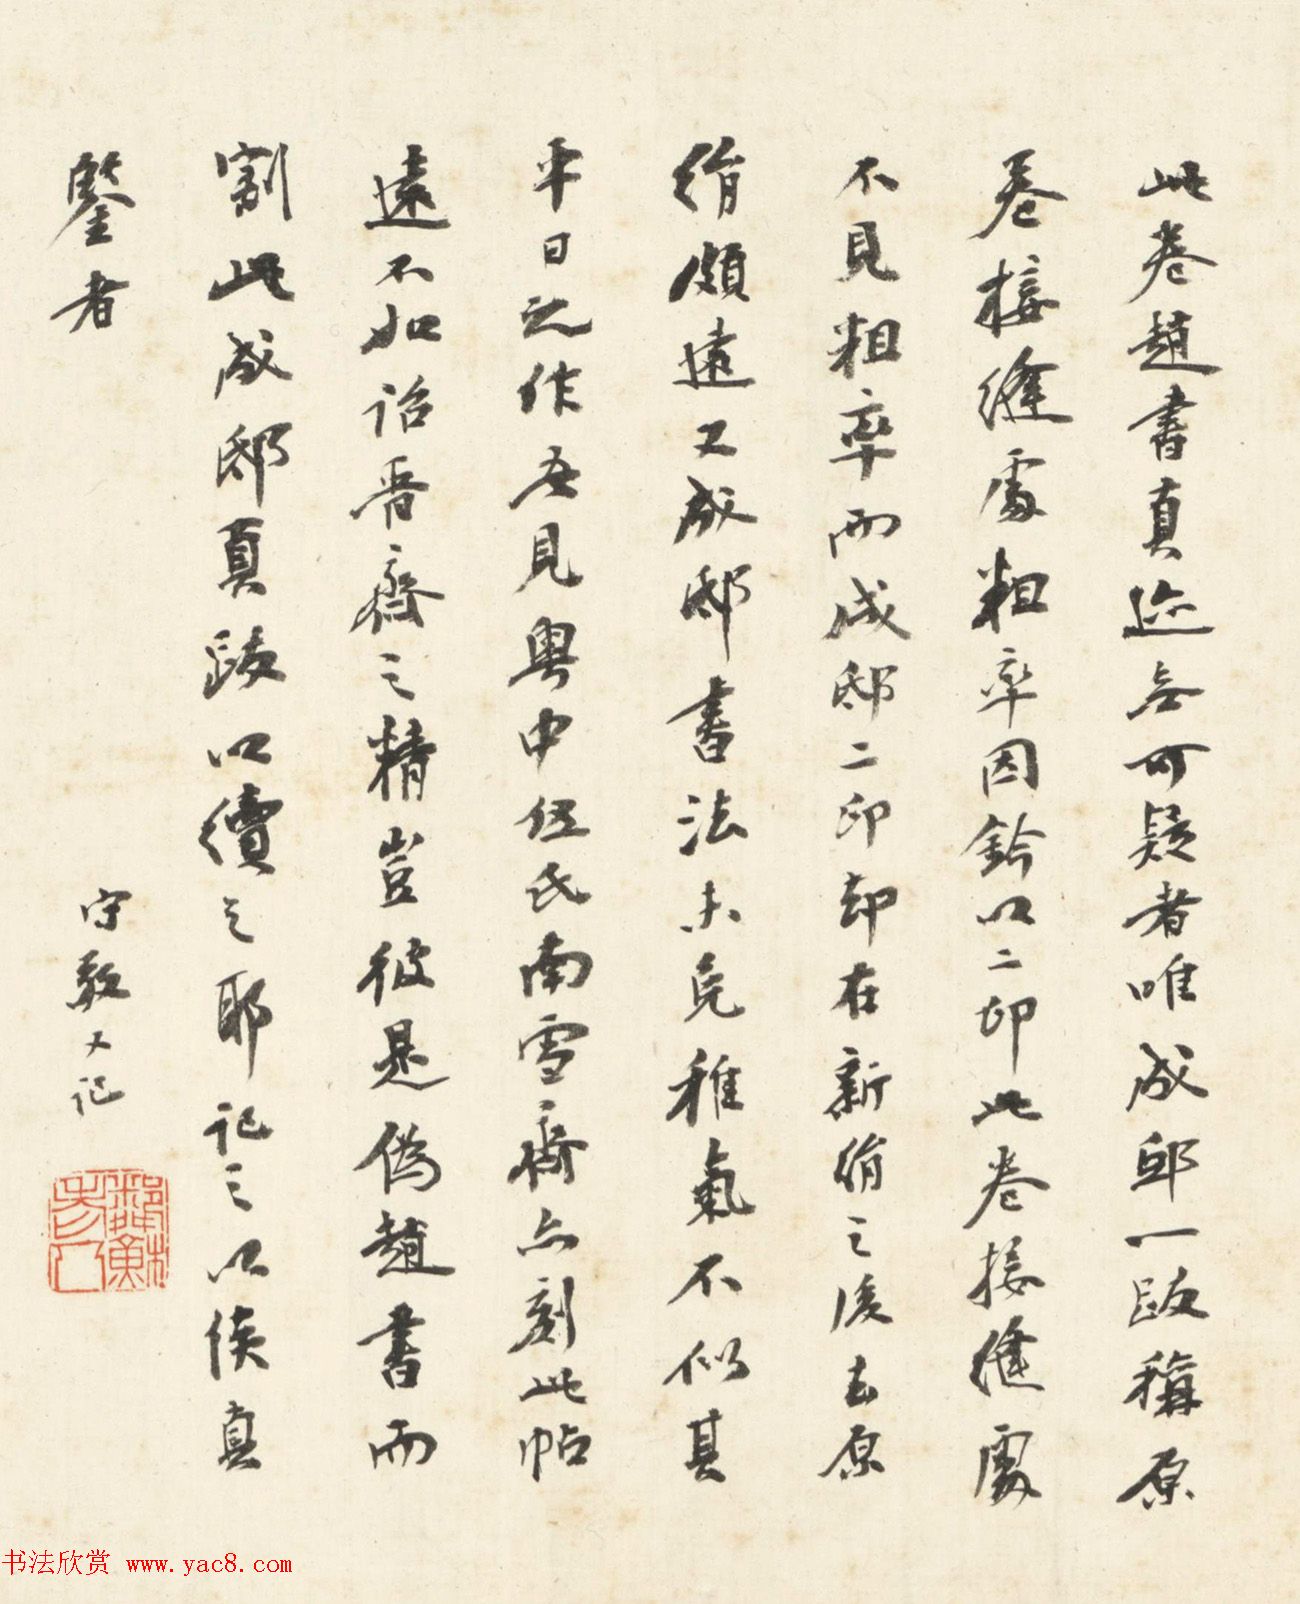 此卷趙書真迹無可疑者唯成邸一跋稱原
卷接縫處粗率因鈐以二印此卷接縫處
不見粗率而成邸二印却在新絹之後去原
絹頗遠又成邸書法未免稚氣不似其
平日之作吾見粵中伍氏南雪齋亦刻此帖
遠不如詒晉齋之精豈彼是偽趙書而
割此成邸真跋以續之耶記之以俟真
鑒者
守敬又記
书法欣赏 www.yac8.com